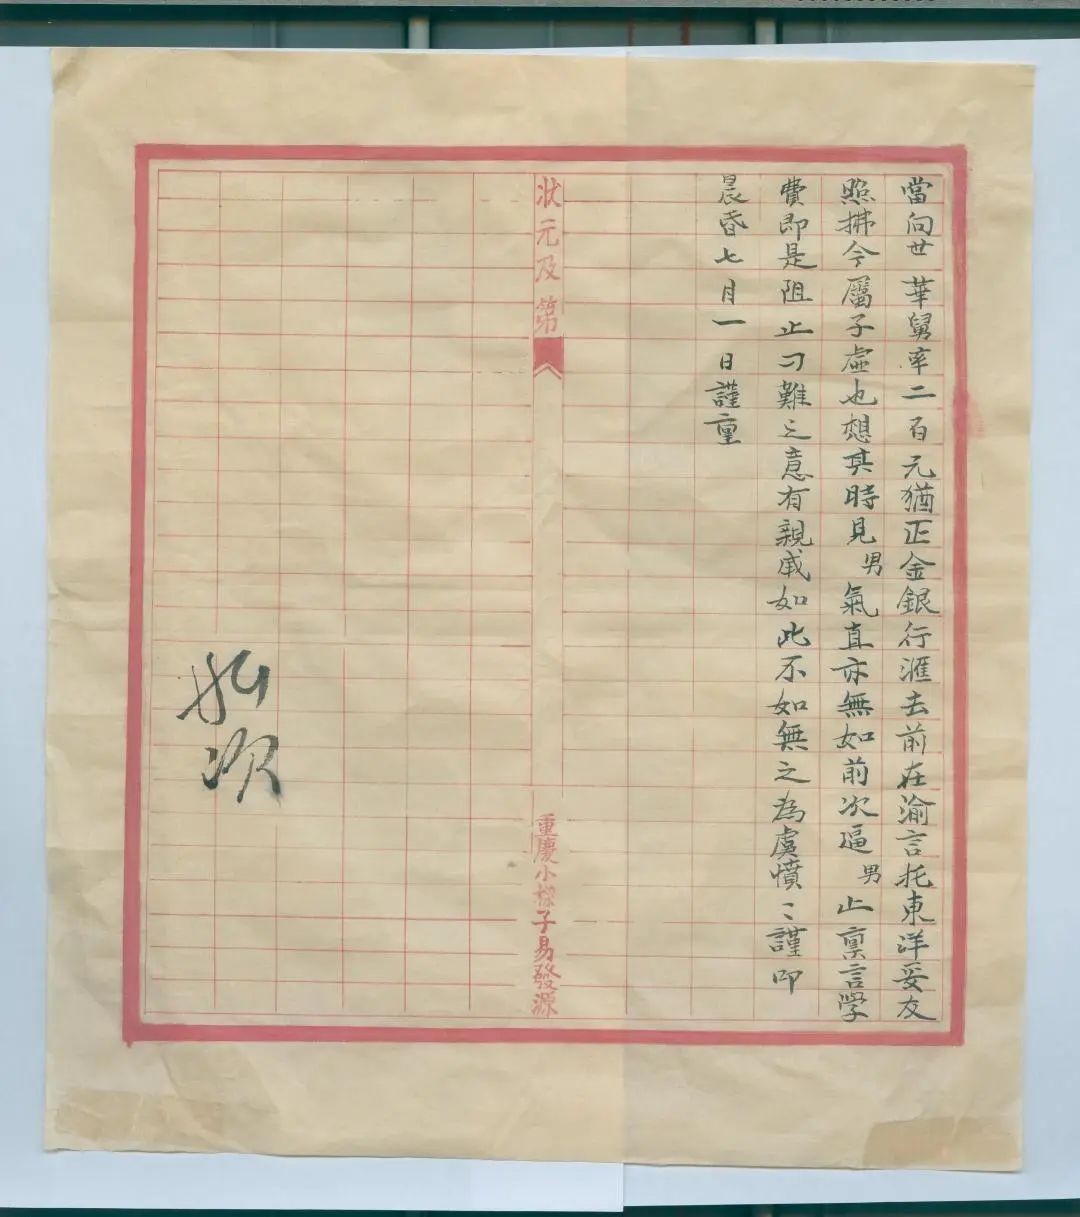 當向世華舅率二百元猶正金銀行滙去前在渝言托東洋妥友
照拂今屬子虛也想其時見男氣直亦無如前次逼男止禀言學
費即是阻止刁難之意有親戚如此不如無之為虞憤〻謹叩
晨昏七月一日謹稟
狀元及第
重慶小樑子易發源